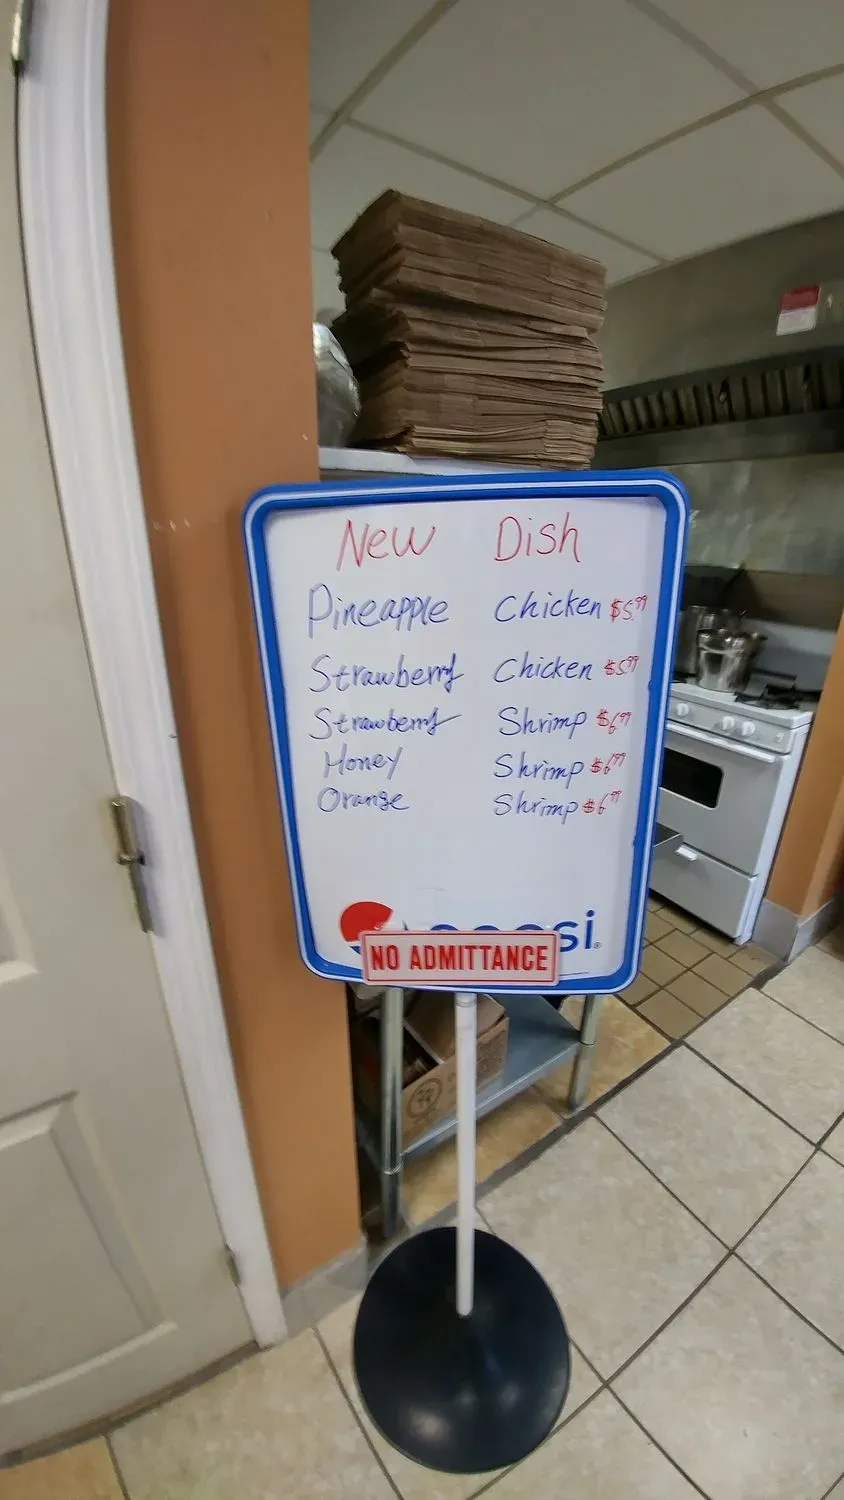 New Dish
Pineapple Chicken $5.99
Strawberry Chicken $5.99
Strawberry Shrimp $6.99
Honey Shrimp $6.99
Orange Shrimp $6.99
pepsi
NO ADMITTANCE